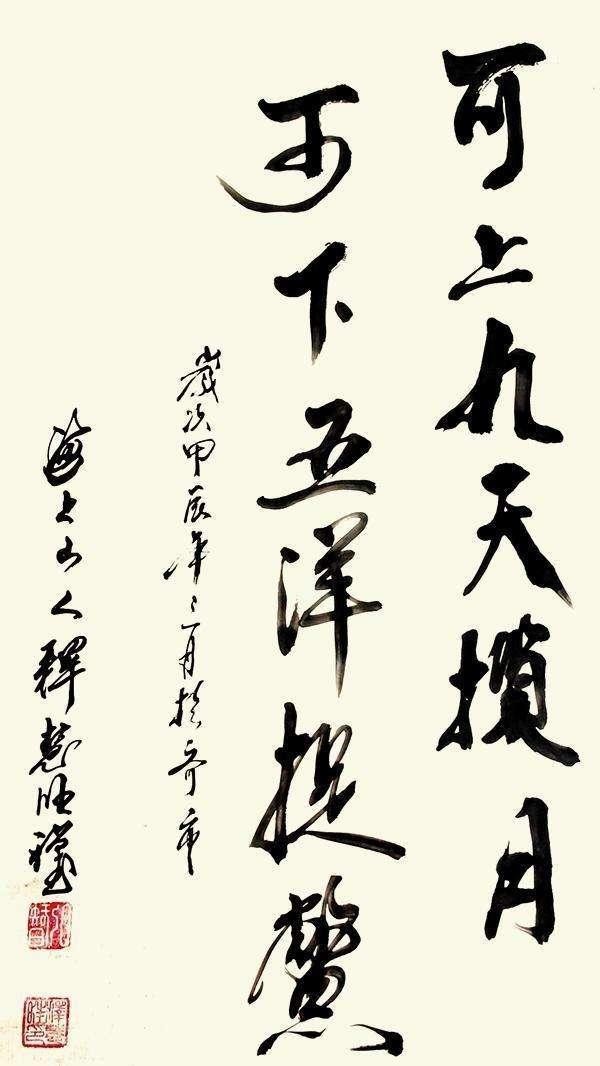 可上九天攬月
可下五洋捉鱉
歲次甲辰年三月於齐市
海上山人釋慧